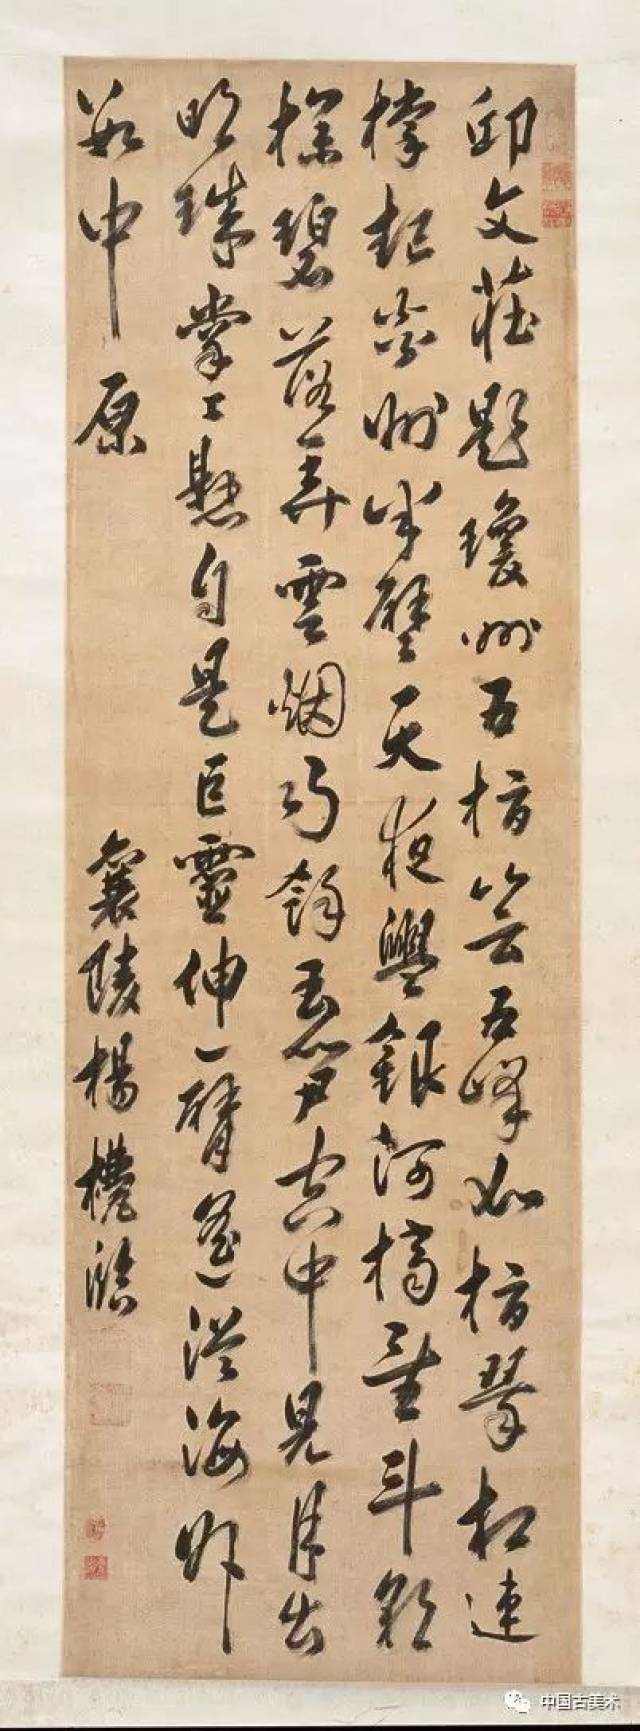 邱文莊題瓊州五指五峰如指翠相連
撑起炎州半壁天夜盥銀河摘星斗朝
探碧落弄雲烟雨餘玉笋空中見月出
明珠掌上懸自是巨靈伸一臂遥從海外
數中原
襄陵楊
中国古美术